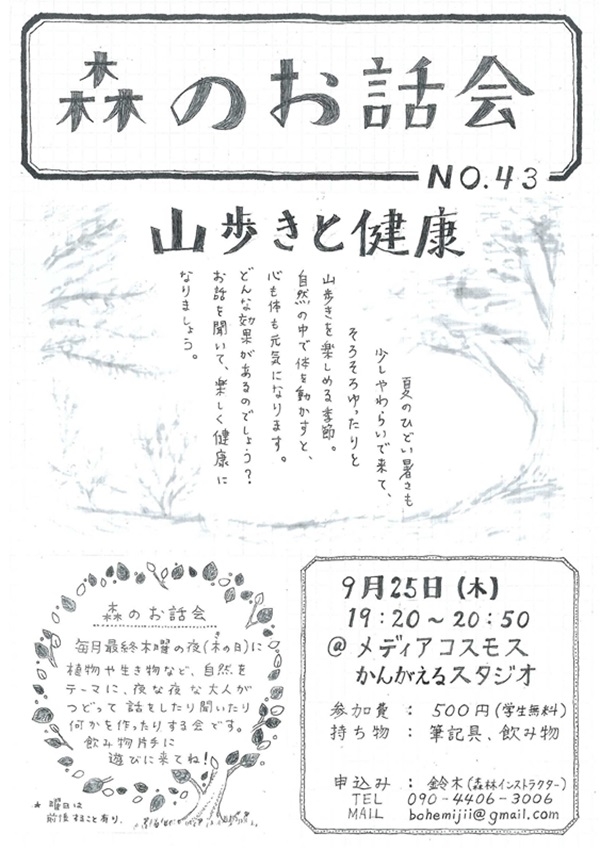 森のお話会
NO.43
山歩きと健康
夏のひどい暑さも
少しやわらいで来て、
そろそろゆったりと
山歩きを楽しめる季節。
自然の中で体を動かすと、
心も体も元気になります。
どんな効果があるのでしょう?
お話を聞いて、楽しく健康に
なりましょう。
森のお話会
毎月最終木曜の夜(木の日)に
植物や生き物など、自然を
テーマに、夜な夜な大人が
つどって話をしたり聞いたり
何かを作ったりする会です。
飲み物片手に
遊びに来てね!
* 曜日は
前後すること有り。
9月25日(木)
19:20~20:50
@メディアコスモス
かんがえるスタジオ
参加費 : 500円(学生無料)
持ち物 : 筆記具、飲み物
申込み : 鈴木(森林インストラクター)
TEL 090-4406-3006
MAIL bohemijii@gmail.com